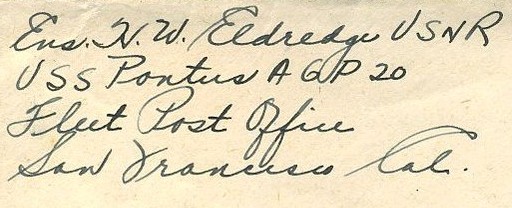 Ens. N. W. Eldredge USNR
USS Pontus AGP 20
Fleet Post Office
San Francisco Cal.